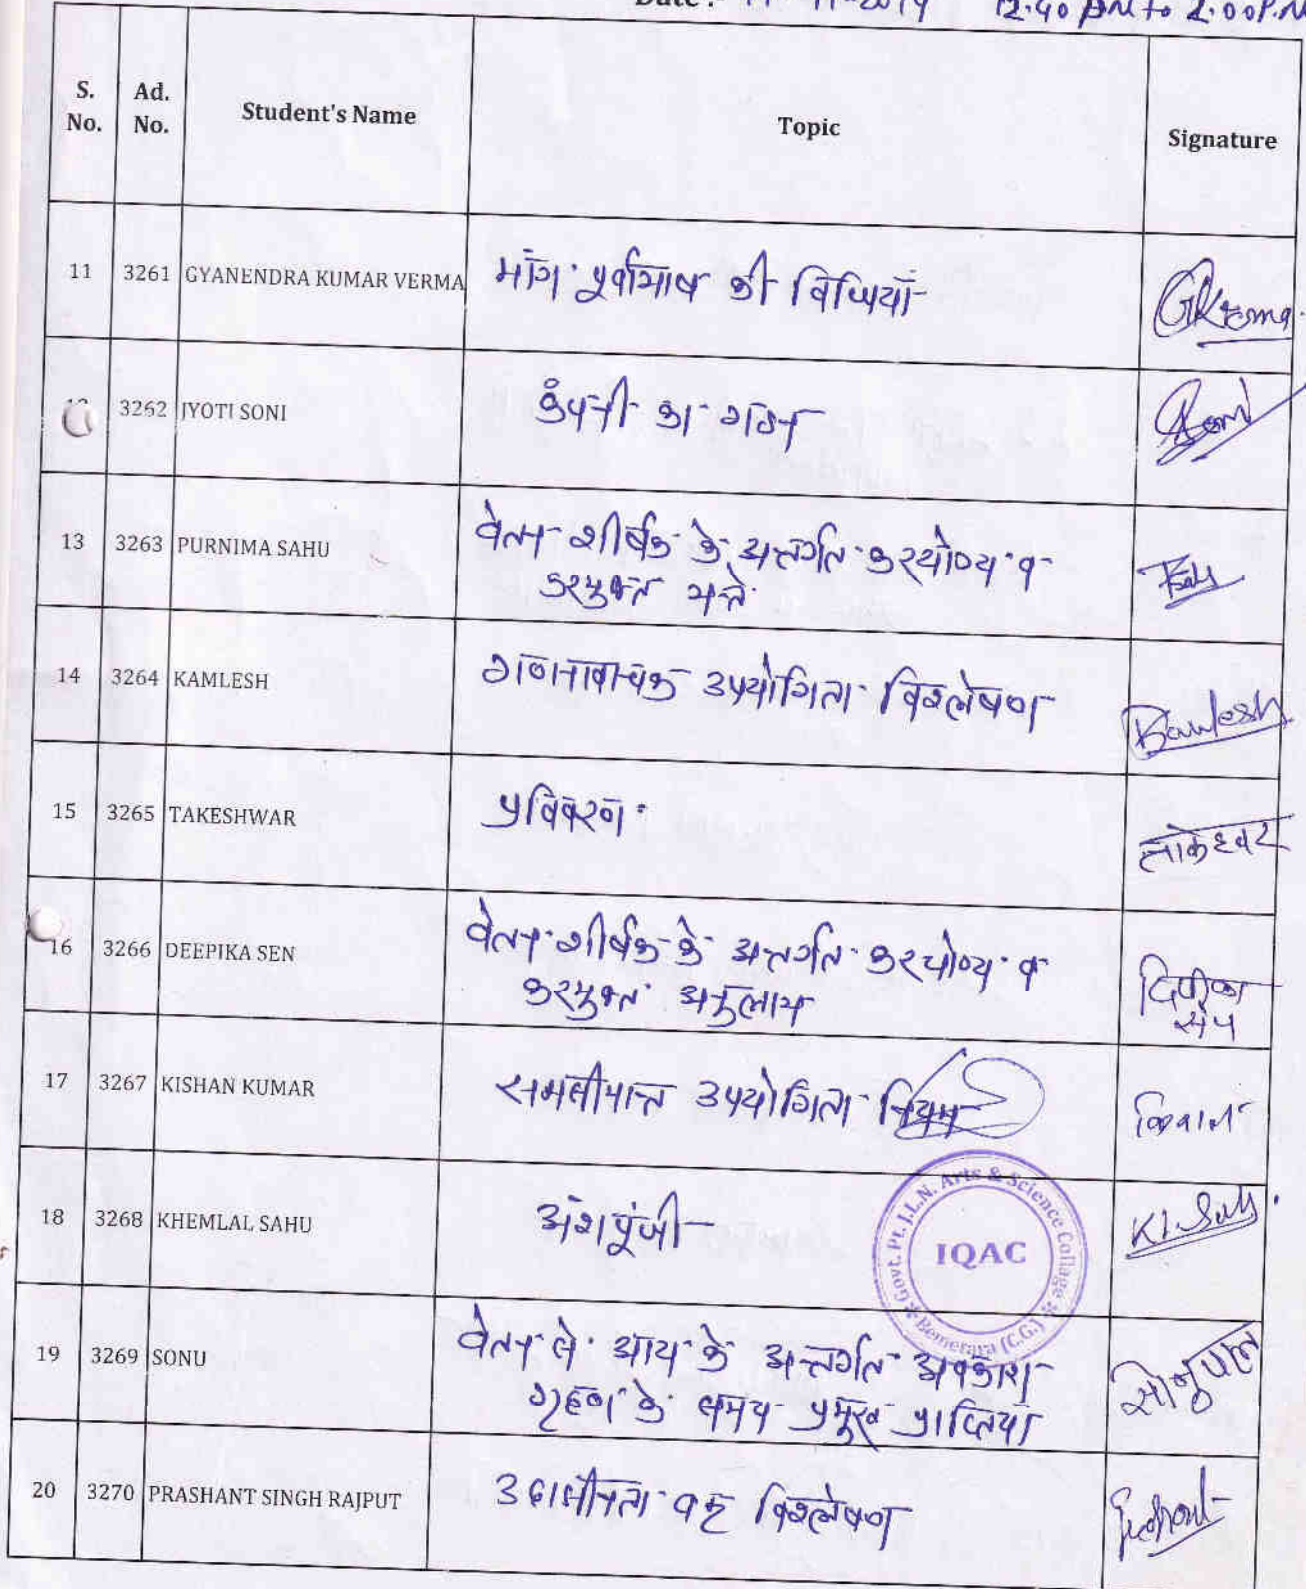 12:40 PM to 2:00 P.M
S. No. Ad. No. Student's Name Topic Signature
11 3261 GYANENDRA KUMAR VERMA मांग पूर्वाभाष की विधियाँ GKVerma
3262 JYOTI SONI कंपनी का गठन Soni
13 3263 PURNIMA SAHU वेतन शीर्षक के अन्तर्गत करयोग्य व
करमुक्त भत्ते
14 3264 KAMLESH गणनावाचक उपयोगिता विश्लेषण Kamlesh
15 3265 TAKESHWAR प्रविवरण ताकेश्वर
16 3266 DEEPIKA SEN वेतन शीर्षक के अन्तर्गत करयोग्य व
करमुक्त अनुलाभ दिपीका
सेन
17 3267 KISHAN KUMAR समसीमान्त उपयोगिता नियम किशन
18 3268 KHEMLAL SAHU अंशपूंजी K.L. Sahu
Govt. Pt. J.L.N. Arts & Science Collage
IQAC
Bemetara (C.G.)
19 3269 SONU वेतन से आय के अन्तर्गत अवकाश
ग्रहण के समय प्रमुख प्राप्तियां सोनुपाल
20 3270 PRASHANT SINGH RAJPUT उदासीनता वक्र विश्लेषण Prashant